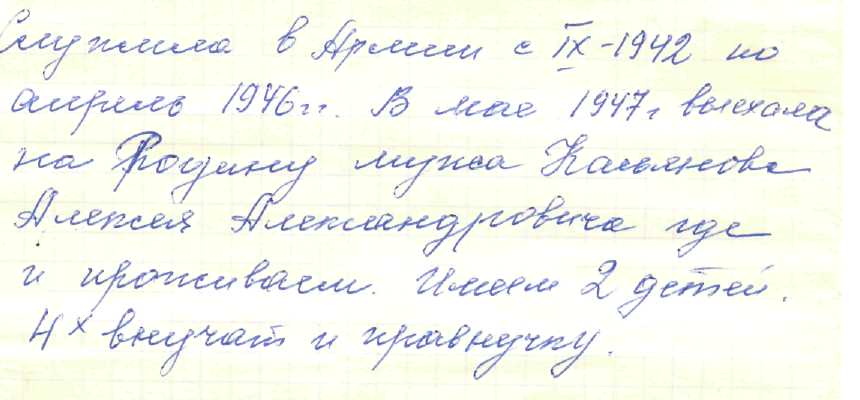 Служила в Армии с IX-1942 по
апрель 1946гг. В мае 1947г выехала
на Родину мужа Касьянова
Алексея Александровича где
и проживаем. Имеем 2 детей.
4х внучат и правнучку.